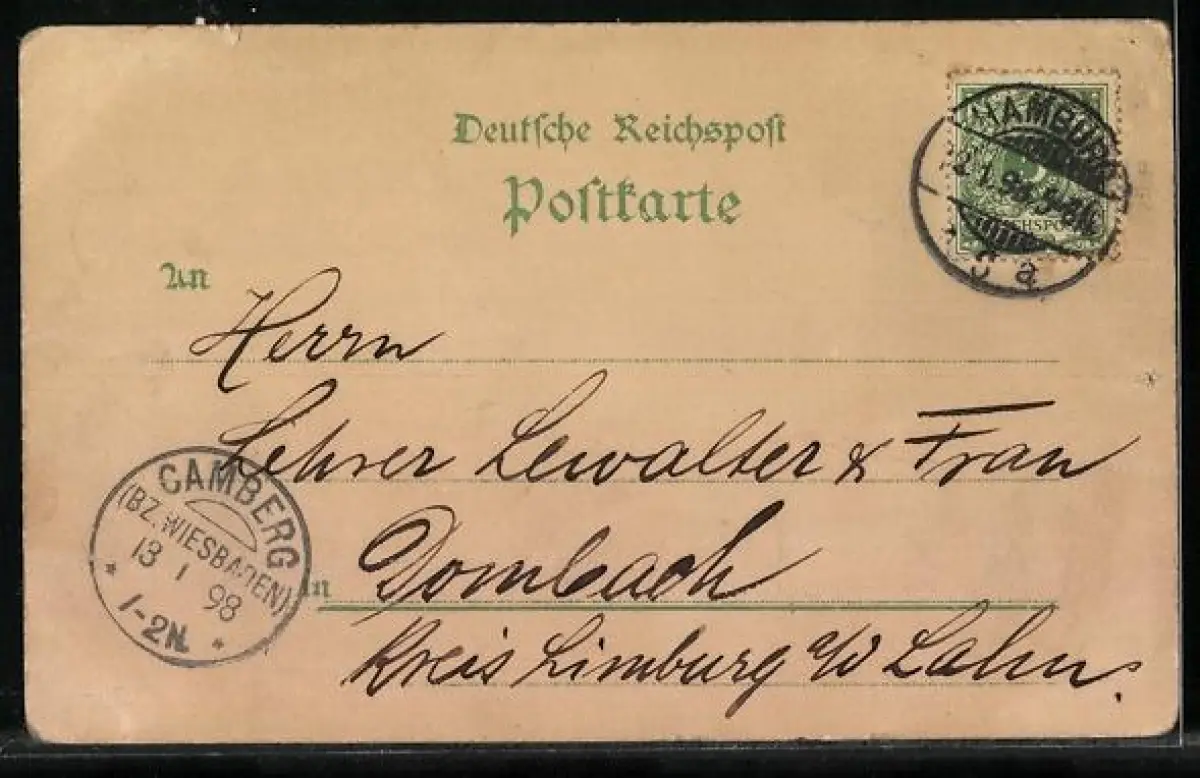 Deutsche Reichspost
Postkarte
HAMBURG
1.98. 5-6N.
REICHSPOST
a
An
Herrn
Lehrer Lewalter & Frau
in Dombach
Kreis Limburg a/d Lahn.
CAMBERG
(BZ. WIESBADEN)
13 1 98
1-2N.